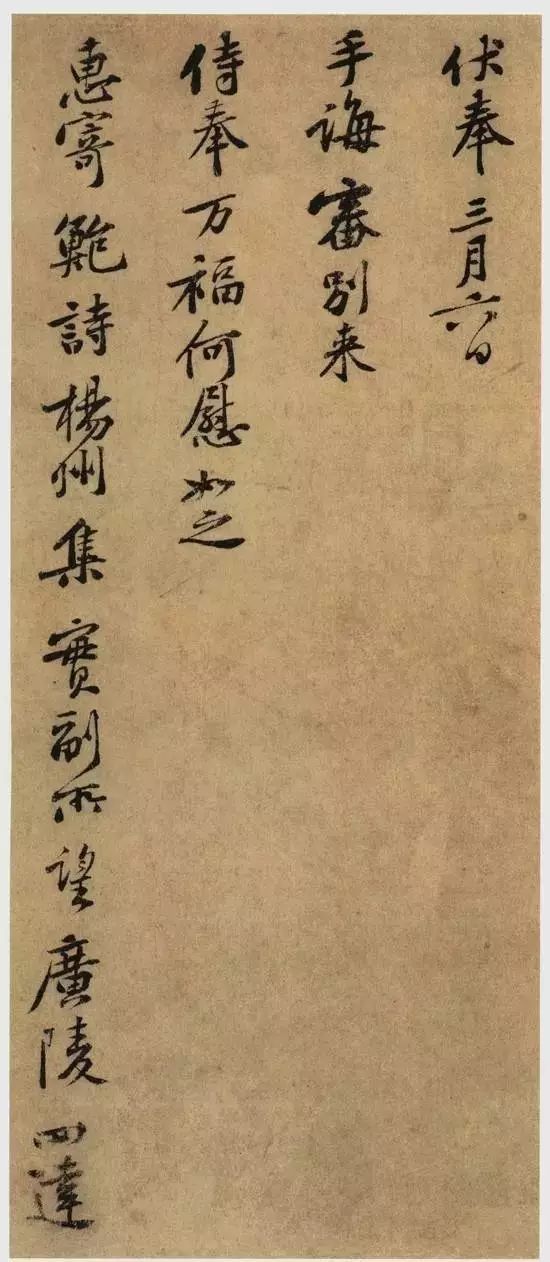 伏奉三月六日
手誨審別来
侍奉万福何慰如之
惠寄鮑詩楊州集實副所望廣陵四達